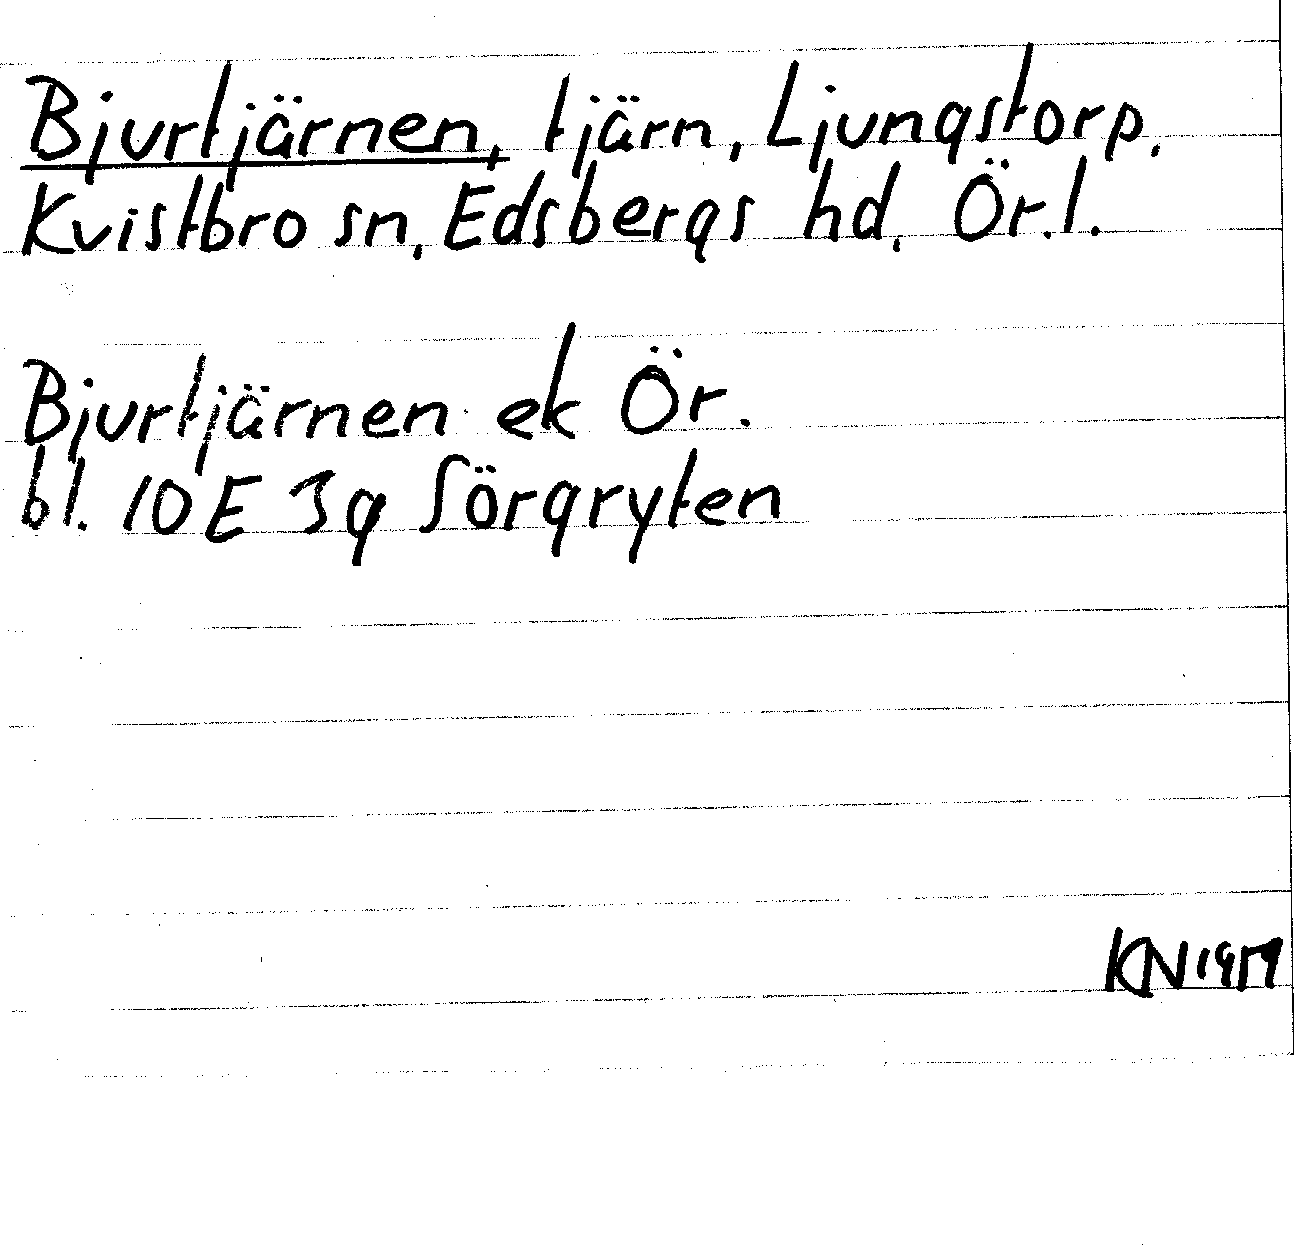 Bjurtjärnen, tjärn, Ljungstorp,
Kvistbro sn, Edsbergs hd, Ör.l.
Bjurtjärnen ek Ör.
bl. 10E 3g Sörgryten
KN